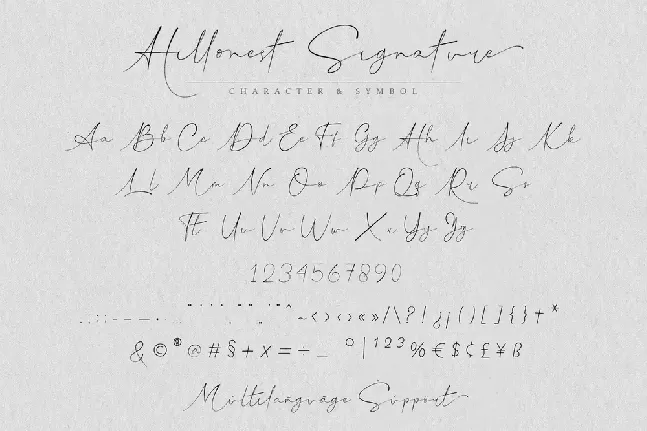 Hillonest Signature
CHARACTER & SYMBOL
Aa Bb Cc Dd Ee Ff Gg Hh Ii Jj Kk
Ll Mm Nn Oo Pp Qq Rr Ss
Tt Uu Vv Ww Xx Yy Zz
1234567890
~ < > ‹ › « » / \ ? ! ¿ ¡ ( ) [ ] { } + *
& © ® @ # § + × = ÷ _ ° | ¹ ² ³ % € $ ¢ £ ¥ ß
Múltilañgväge Süppout